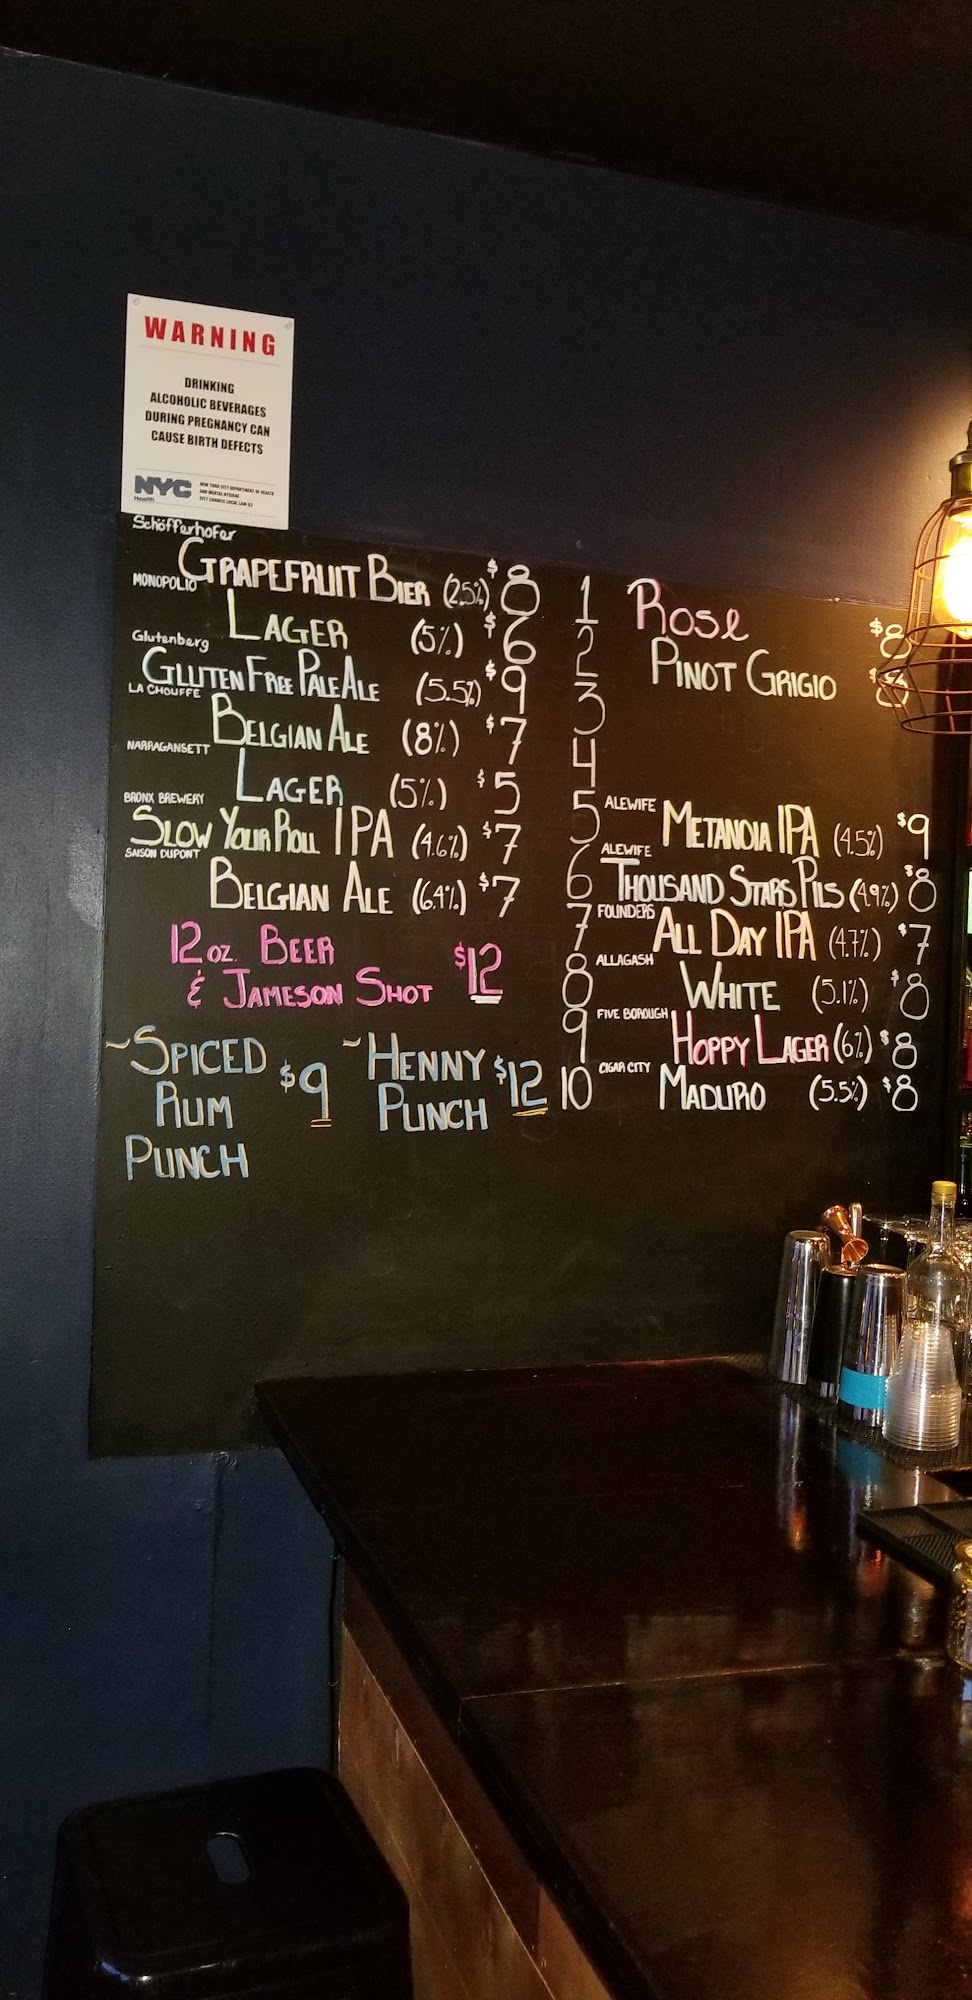 WARNING
DRINKING
ALCOHOLIC BEVERAGES
DURING PREGNANCY CAN
CAUSE BIRTH DEFECTS
NYC
Health
NEW YORK CITY DEPARTMENT OF HEALTH
AND MENTAL HYGIENE
CITY COUNCIL LOCAL LAW 63
Schöfferhofer
GRAPEFRUIT BIER (2.5%) $8
MONOPOLIO
LAGER (5%) $6
Glutenberg
GLUTEN FREE PALE ALE (5.5%) $9
LA CHOUFFE
BELGIAN ALE (8%) $7
NARRAGANSETT
LAGER (5%) $5
BRONX BREWERY
SLOW YOUR ROLL IPA (4.6%) $7
SAISON DUPONT
BELGIAN ALE (6.4%) $7
12 OZ. BEER
& JAMESON SHOT $12
~SPICED
RUM
PUNCH
$9
~HENNY
PUNCH
$12
1 Rose $8
2 PINOT GRIGIO
3
4
5 ALEWIFE METANOIA IPA (4.5%) $9
6 ALEWIFE THOUSAND STARS PILS (4.9%) $8
7 FOUNDERS ALL DAY IPA (4.7%) $7
8 ALLAGASH WHITE (5.1%) $8
9 FIVE BOROUGH HOPPY LAGER (6%) $8
10 CIGAR CITY MADURO (5.5%) $8